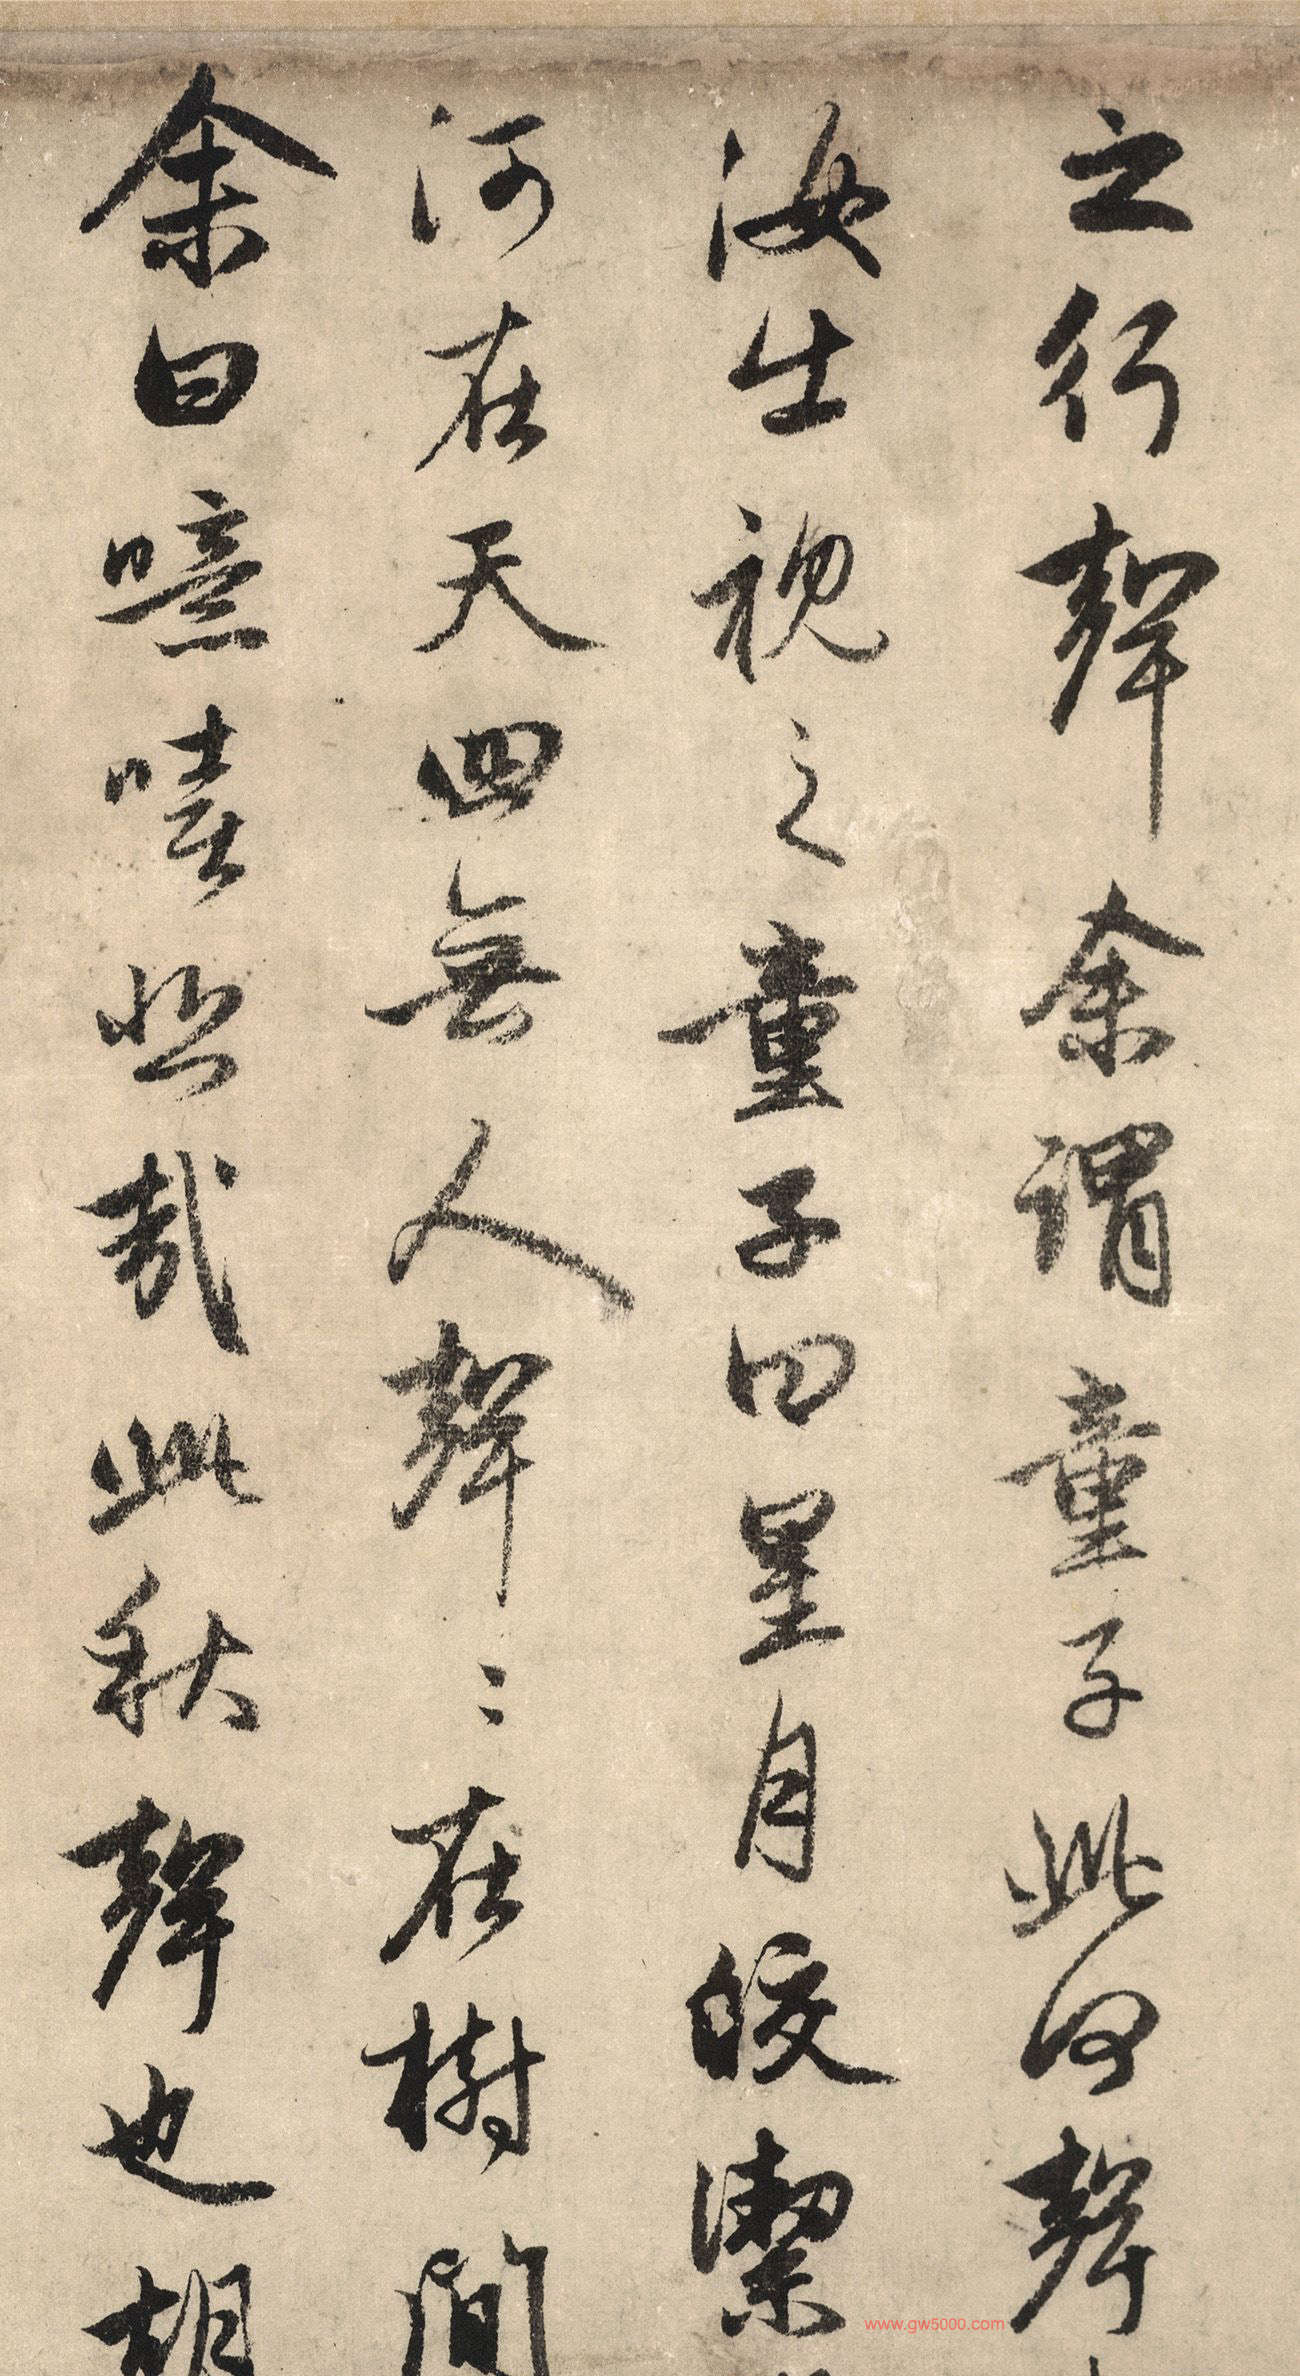 之行聲余謂童子此何聲
汝出視之童子曰星月皎潔
河在天四無人聲〻在樹間
余曰噫嘻悲哉此秋聲也胡
www.gw5000.com